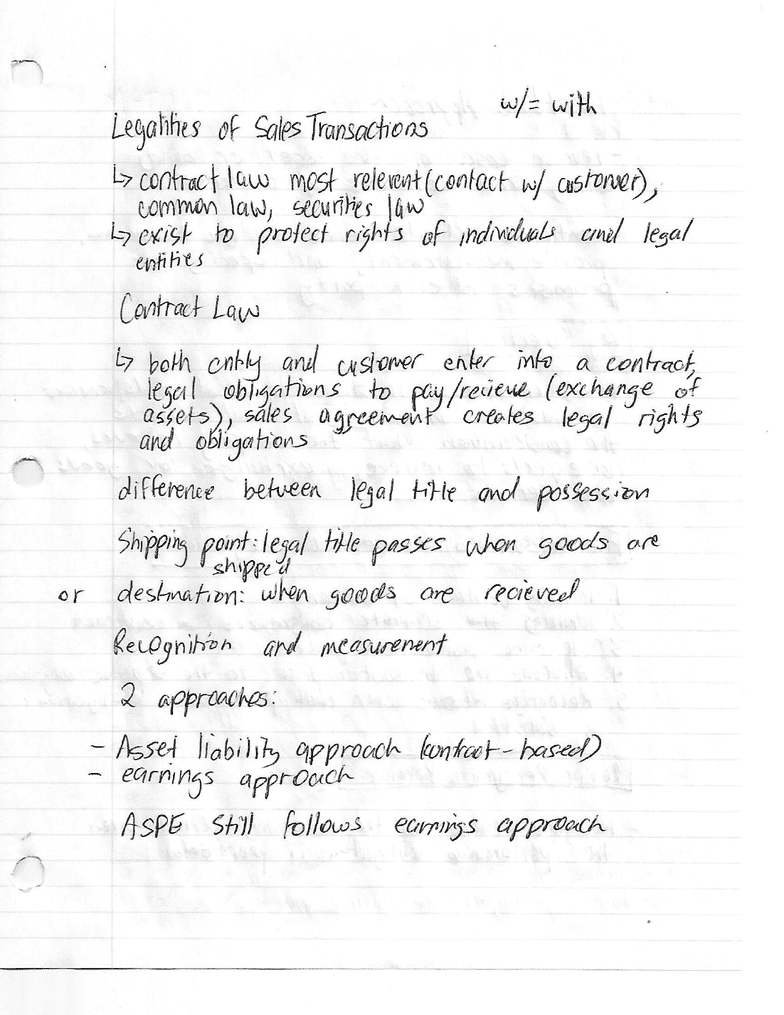 w/= with
Legalities of Sales Transactions
↳ contract law most relevent (contact w/ customer),
common law, securities law
↳ exist to protect rights of individuals and legal
entities
Contract Law
↳ both entity and customer enter into a contract,
legal obligations to pay/recieve (exchange of
assets), sales agreement creates legal rights
and obligations
difference between legal title and possession
Shipping point: legal title passes when goods are
shipped
or destination: when goods are recieved
Recognition and measurement
2 approaches:
- Asset liability approach (contract-based)
- earnings approach
ASPE still follows earnings approach